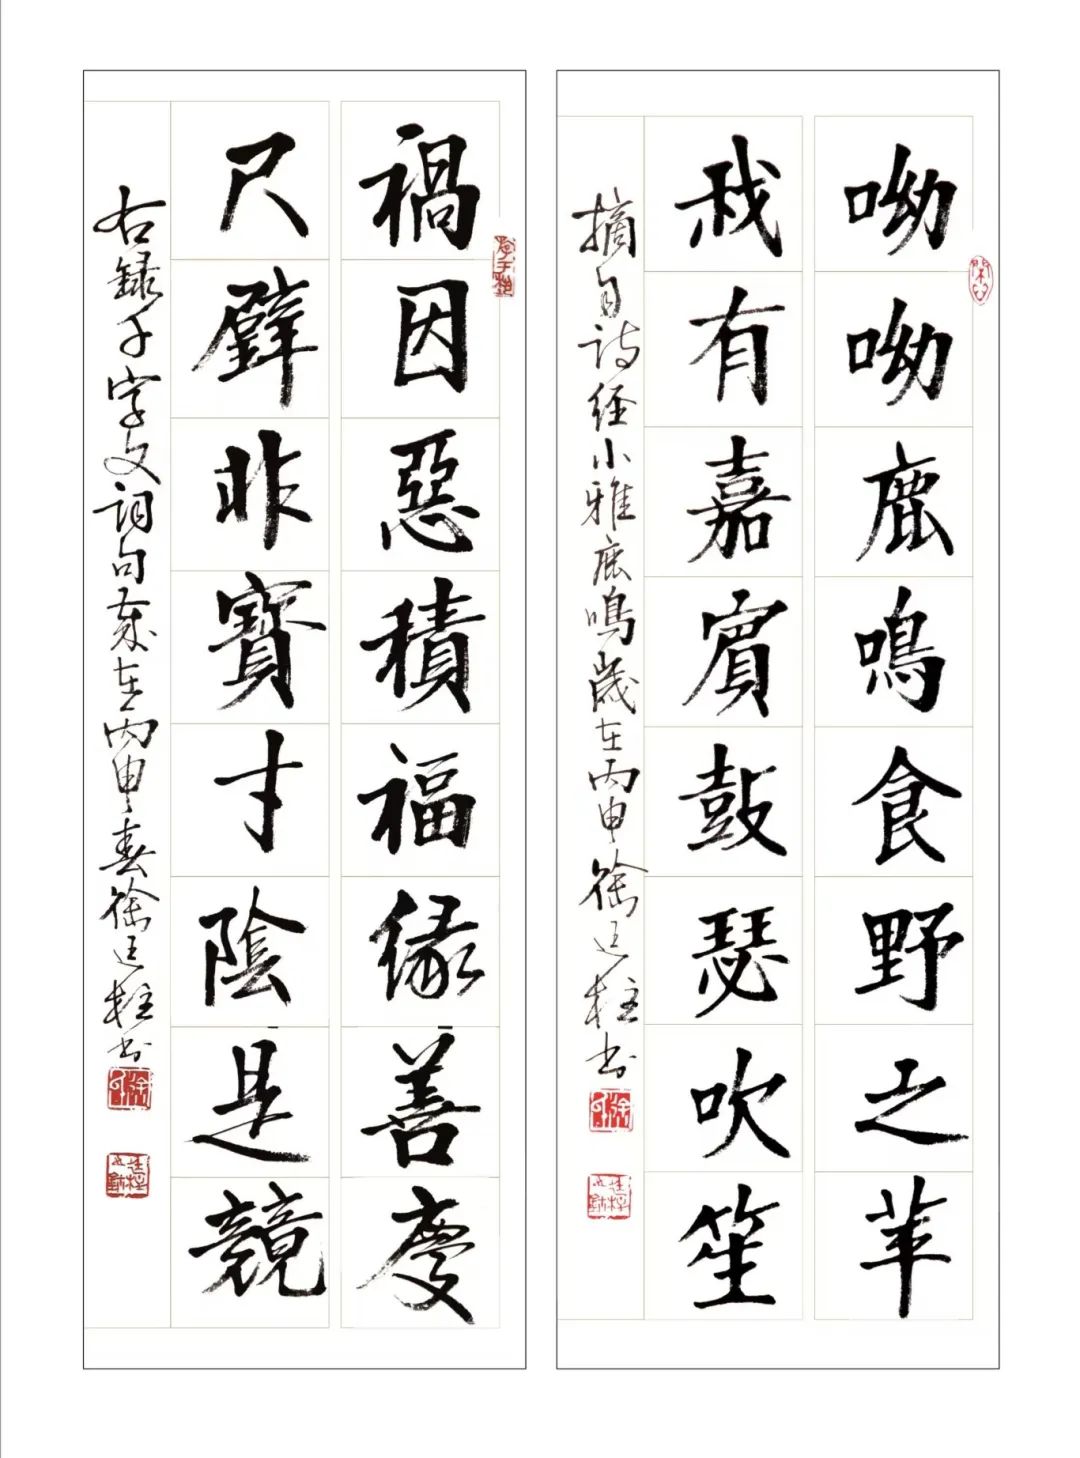 呦呦鹿鳴食野之苹
我有嘉賓鼓瑟吹笙
摘自詩經小雅鹿鳴歲在丙申徐廷柱書
禍因惡積福緣善慶
尺璧非寶寸陰是競
右錄千字文詞句歲在丙申春徐廷柱書